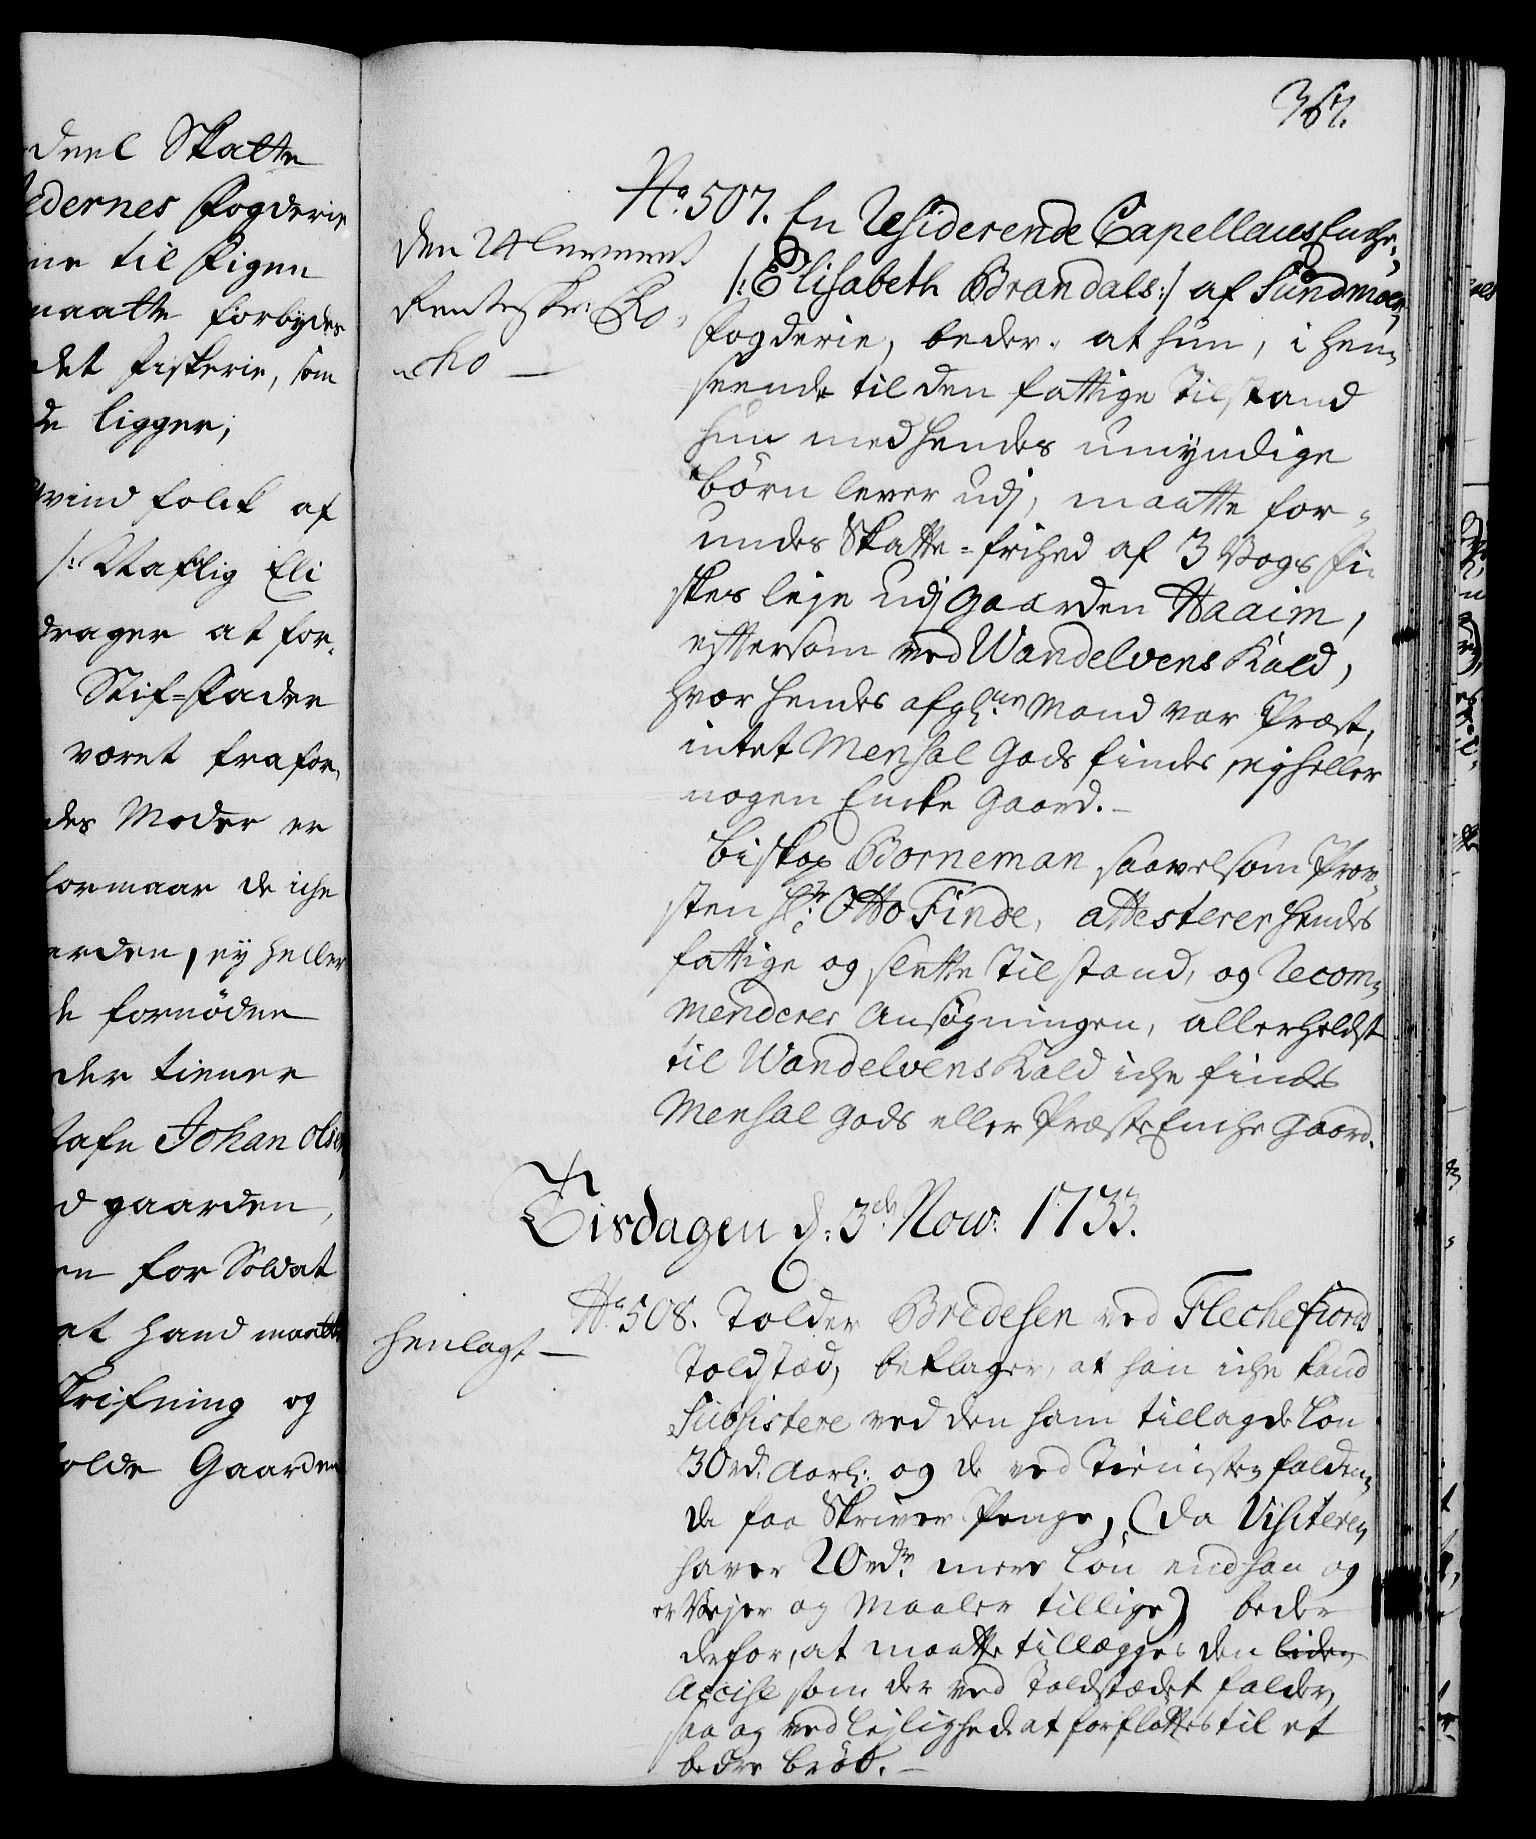 367.
deel Skatte
edernes Fogderie
ne til Figen
maatte forbydes
det Fiskerie, som
de ligger;
qvind folck af
/: Navlig Eli
drager at for-
Stif-Fader
været frafor,
des Moder er
formaar de iche
orden, ey heller
de fornöden
der tiener
Johan Olsen
d gaarden,
en for Soldat
at hand maatte
skrifning og
olde Gaarden
No. 507. En Residerende Capellans Enche,
/: Elisabeth Brandals :/ af Sundmoers
Fogderie, beder. at hun, i hen-
seende til den fattige Tilstand
hun med hendes umyndige
börn lever udj, maatte for-
undes Skatte-frihed af 3 Vogs fi-
skes leje udj gaarden Haaim,
eftersom ved Wandelvens Kald,
hvor hendes afgl. Mand var Præst,
intet Mensal Gods findes, ejheller
nogen Encke Gaard.
Den
Renteskr:
Biskop Borneman saavelsom Prov-
sten Hr. Otto Finde, attesterer hendes
fattige og slette Tilstand, og Recom-
menderer Ansøgningen, allerheldst
til Wandelvens Kald iche findes
Mensal Gods eller Præste Enche Gaard.
Tisdagen d: 3de Now: 1733.
No. 508. Tolder Bredesen ved Flechefiords
Henlagt
Toldsted, beklager, at han iche kand
Subsistere ved den ham tillagde Lön
30 rd. Aarl: og de ved Tienisten falden-
de faa Skriver Penge, (da Visiteren
haver 20 rdr. mere Lön end han og
er Vejer og Maaler tillige) beder
derfor, at maatte tillægges den liden
Accise som der ved Toldstædet falder,
saa og ved lejlighed at forflöttes til et
bedre bröd.